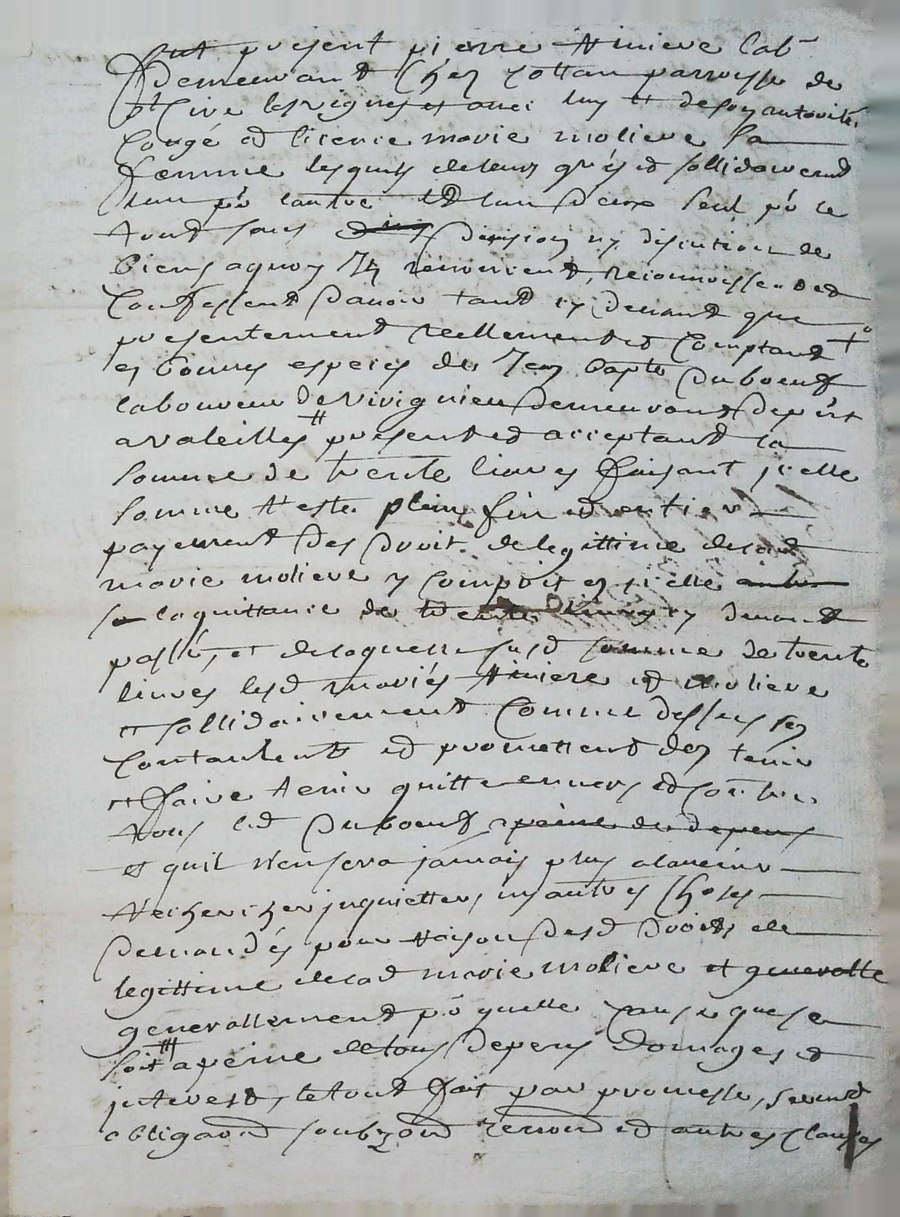 fut present pierre Riviere lab^r
Demeurant Chez Cottan parroisse de
S^t Cire les vignes et avec luy et de son autorité
Congé et licence marie moliere sa
femme lesquels de leurs grés et sollidairement
lun p^r lautre et lun deux seul p^r le
tout sans division ny discution de
biens a quoy ils renoncent, reconnoissent et
Confessent avoir tant cy devant que
presentement reellement et Comptant +
en bonnes especes de Jean bapte Duboeuf
laboureur de Demeurant
a valeilles # present et acceptant la
Somme de trente livres faisant icelle
somme reste plein fin et entier
payement des droits de legittime de lad
marie moliere y Compris en icelle
la quittance de trente cy devant
passé, et de laquelle susd somme de trente
livres lesd mariés Riviere et moliere
et sollidairement Comme dessus sen
Contentent et promettent den tenir
et faire tenir quitte envers et contre
tous led Duboeuf a peine de depens
et quil nen sera jamais plus
Rechercher inquietter, ny autres Choses
Demandés pour Raison desd droits de
legittime de lad marie moliere et generalle
generallement p^r quelle Cause que se
soit # a peine de tous depens Domages et
interest, le tout fait par promesse, serment
obligaon soubz^on renon et autres Clauses